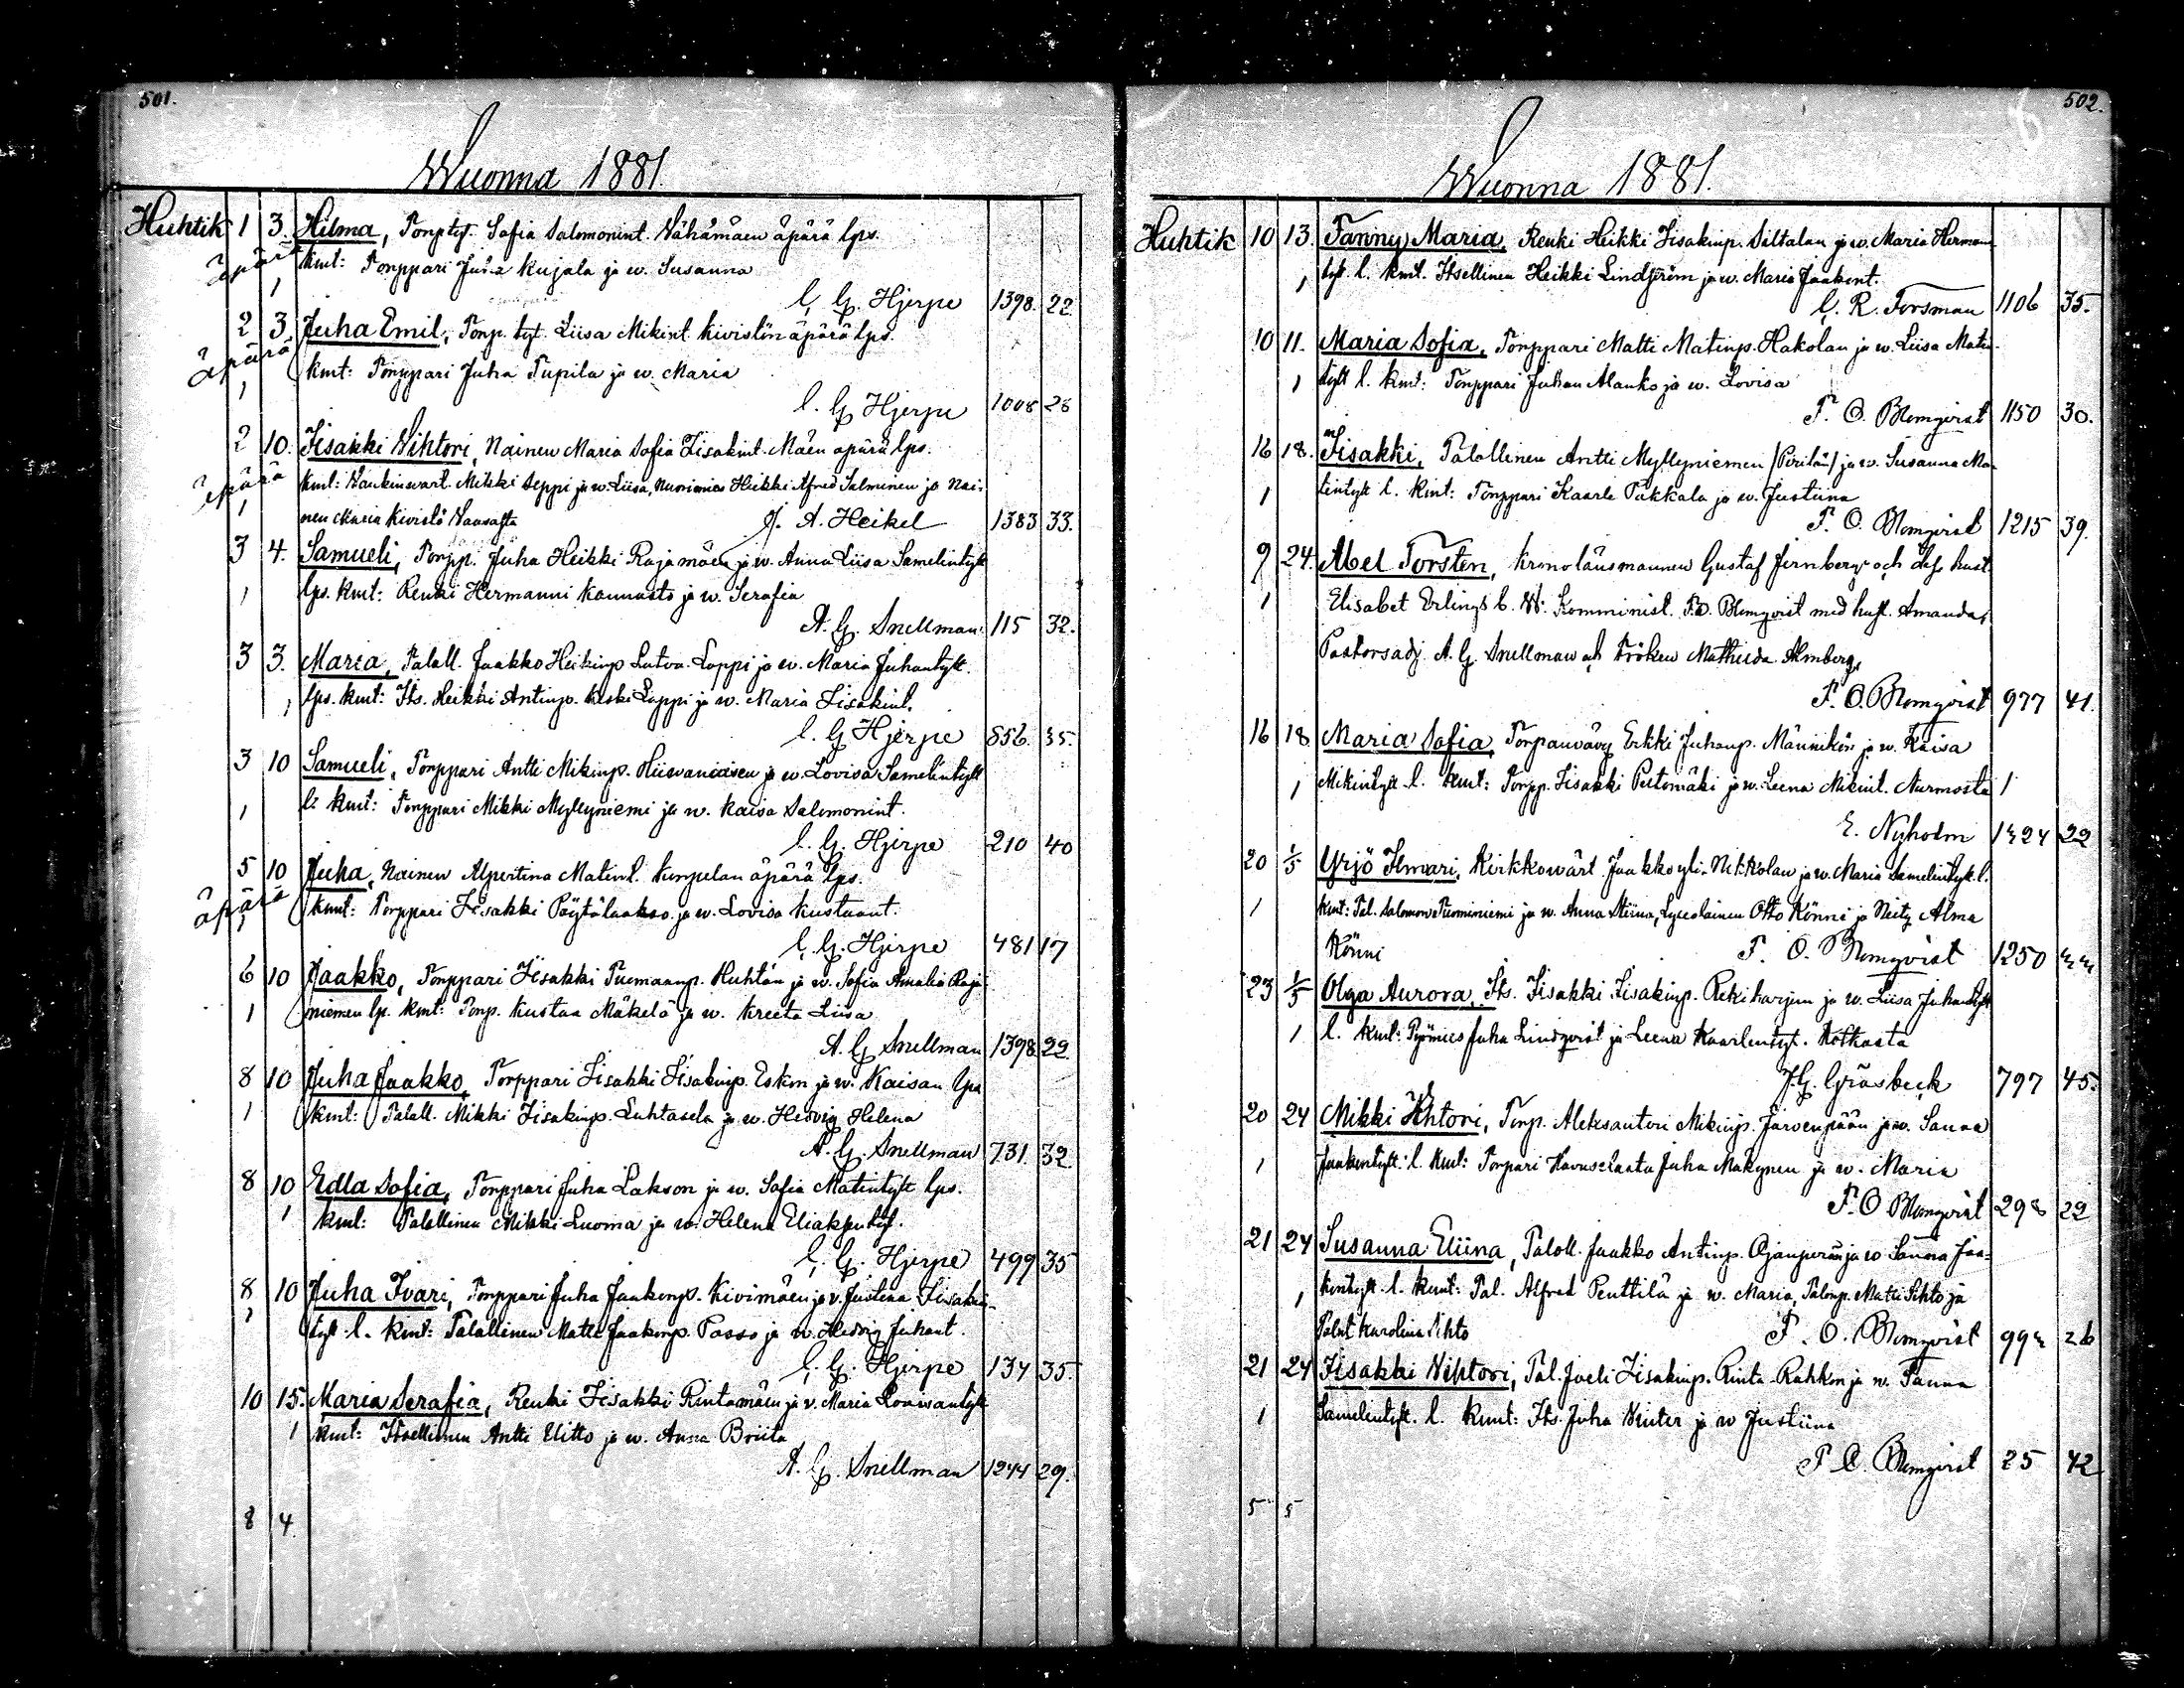 501.
Wuonna 1881.
Huhtik 1 3. Hilma, Torp.tyt. Sofia Salomonint. Vähämäen äpärä lps.
äpärä kmt: Torppari Juha Kujala ja w. Susanna
1 C. G. Hjerpe 1398. 22
2 3. Juha Emil, Torp. tyt. Liisa Mikint. Kivistön äpärä lps.
äpärä kmt: Torppari Juha Tupila ja w. Maria
1 C. G. Hjerpe 1008 28
2 10. Iisakki Wihtori, Nainen Maria Sofia Iisakint. Mäen äpärä lps.
äpärä kmt: Mikki Seppi ja w. Liisa, Nuorimies Heikki Alfred Salminen ja Nai-
1 nen Maria Kivistö J. A. Heikel 1383 33.
3 4. Samueli, Torpp. Juha Heikki Rajamäen ja w. Anna Liisa Samelintytt
1 lps. kmt: Renki Hermanni Kaunasto ja w. Serafia
A. G. Snellman 115 32.
3 3. Maria, Talall. Jaakko Heikinp. Latva-Loppi ja w. Maria Juhantytt.
1 lps. kmt: Its. Heikki Antinp. Keski Loppi ja w. Maria Iisakint.
C. G. Hjerpe 856. 35.
3 10 Samueli, Torppari Antti Mikinp. ja w. Lovisa Samelintytt
1 l. kmt: Torppari Mikki Myllyniemi ja w. Kaisa Salomonint.
C. G. Hjerpe 210 40
5 10 Juha, Nainen Alpertina Matint. äpärä lps.
äpärä kmt: Torppari Iisakki Pöytälaakso ja w. Lovisa Kustaant.
1 C. G. Hjerpe 481 17
6 10 Jaakko, Torppari Iisakki Tuomaanp. Huhtan ja w. Sofia Amalia Raja-
1 niemen lp. kmt: Torp. Kustaa Mäkelä ja w. Kreeta Liisa
A. G. Snellman 1398 22.
8 10 Juha Jaakko, Torppari Iisakki Iisakinp. Eskon ja w. Kaisan lps
1 kmt: Talall. Mikki Iisakinp. Luhtasela ja w. Hedvig Helena
A. G. Snellman 731. 32
8 10 Edla Sofia, Torppari Juha Lakson ja w. Sofia Matintytt lps.
1 kmt: Talallinen Mikki Luoma ja w. Helena
C. G. Hjerpe 499 35
8 10 Juha Ivari, Torppari Juha Jaakonp. Kivimäen ja v. Justina Iisakin-
1 tytt. l. kmt: Talallinen Matti Jaakonp. Passo ja w. Hedvig Juhant.
C. G. Hjerpe 134 35.
10 15. Maria Serafia, Renki Iisakki Rintamäen ja v. Maria
1 kmt: Itsellinen Antti Uitto ja w. Anna Briita
A. G. Snellman 1244 29.
8 4.
502.
Wuonna 1881.
Huhtik 10 13. Fanny Maria, Renki Heikki Iisakinp. Siltalan ja w. Maria Herman-
1 tyt. l. kmt. Itsellinen Heikki Lindström ja w. Maria Jaakont.
C. R. Forsman 1106 35.
10 11. Maria Sofia, Torppari Matti Matinp. Hakolan ja w. Liisa Matin-
1 tytt l. kmt: Torppari Juhan Alanko ja w. Lovisa
F. O. Blomqvist 1150 30.
16 18. Iisakki, Talollinen Antti Myllyniemen (Perilän) ja w. Susanna Ma-
1 tintytt l. kmt: Torppari Kaarle Pakkala ja w. Justiina
F. O. Blomqvist 1215 39.
9 24. Abel Torsten, Kronolänsmannen Gustaf Jernberg och dess hust.
1 Elisabet Erlings b. W: Komminist. F.O. Blomqvist med hust. Amanda,
Pastorsadj. A. G. Snellman och Fröken Mathilda Almberg,
F. O. Blomqvist 977 41.
16 18 Maria Sofia, Torpanvävy Erkki Juhanp. Männikön ja w. Kaisa
1 Mikintytt. l. kmt: Torpp. Iisakki Peitomäki ja w. Leena Mikint. Nurmosta 1
E. Nyholm 1424 22
20 1/5 Yrjö Ilmari, Kirkkowärt. Jaakko yli-Nikkolan ja w. Maria Samelintyt. l.
1 kmt: Tal. Salomon Tuominiemi ja w. Anna Stiina, Lyceolainen Otto Könni ja Neity Alma
Könni F. O. Blomqvist 1250 44
23 1/5 Olga Aurora, Its. Iisakki Iisakinp. Rekiharjun ja w. Liisa Juhantytt
1 l. kmt: Työmies Juha Lindqvist ja Leena Kaarlentyt. Kotkasta
J. G. Gråsbeck 797 45.
20 24 Mikki Wihtori, Torp. Aleksanteri Mikinp. Järvenpään ja w. Sanna
1 Jaakontytt. l. kmt: Torpari Juha Mäkynen ja w. Maria
F. O Blomqvist 298 22
21 24 Susanna Eliina, Taloll. Jaakko Antinp. Ojanperän ja w Sanna Jaa-
1 kontytt. l. kmt: Tal. Alfred Penttilä ja w. Maria, Talonp. Matti Sihto ja
Talont Karolina Sihto F. O. Blomqvist 994 26
21 24 Iisakki Wihtori, Tal. Joeli Iisakinp. Rinta-Rahkon ja w. Sanna
1 Samelintytt. l. kmt: Its. Juha Winter ja w Justiina
F O. Blomqvist 25 42
5 5